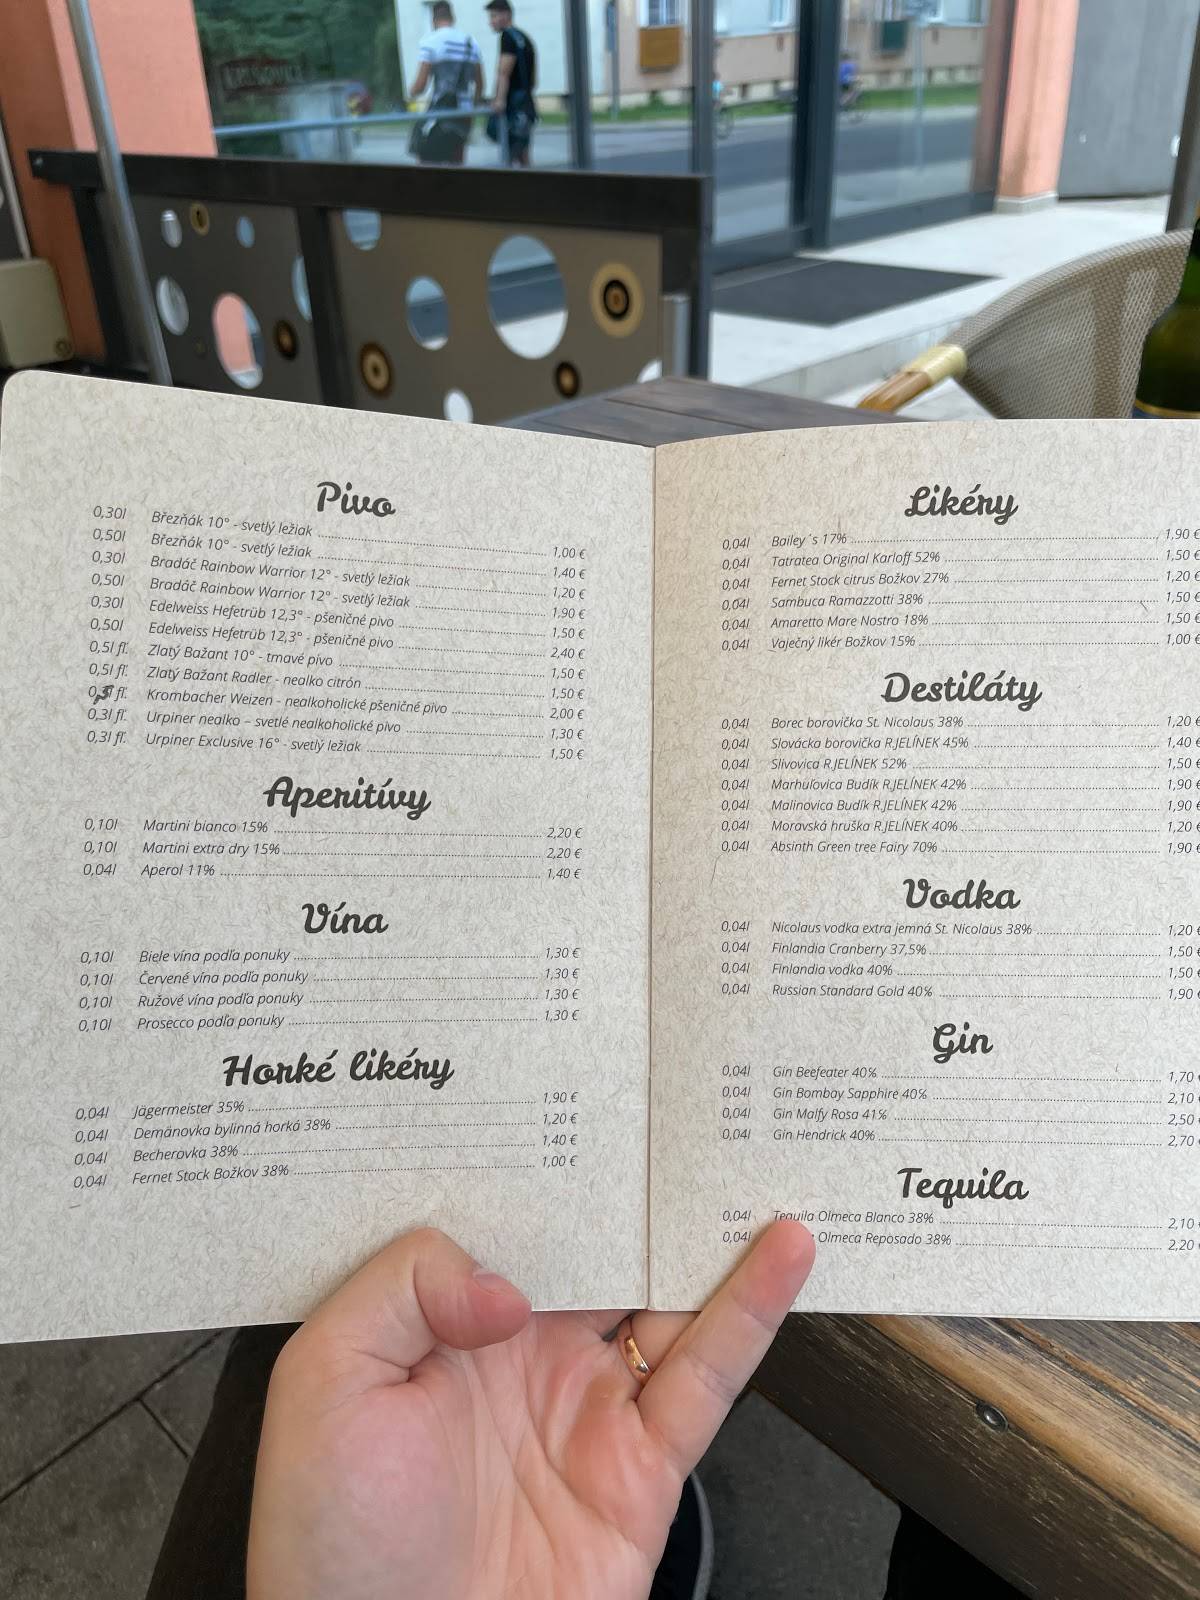 Pivo
0,30l Březňák 10° - svetlý ležiak 1,00 €
0,50l Březňák 10° - svetlý ležiak 1,40 €
0,30l Bradáč Rainbow Warrior 12° - svetlý ležiak 1,20 €
0,50l Bradáč Rainbow Warrior 12° - svetlý ležiak 1,90 €
0,30l Edelweiss Hefetrüb 12,3° - pšeničné pivo 1,50 €
0,50l Edelweiss Hefetrüb 12,3° - pšeničné pivo 2,40 €
0,5l fľ. Zlatý Bažant 10° - tmavé pivo 1,50 €
0,5l fľ. Zlatý Bažant Radler - nealko citrón 1,50 €
fľ. Krombacher Weizen - nealkoholické pšeničné pivo 2,00 €
0,3l fľ. Urpiner nealko – svetlé nealkoholické pivo 1,30 €
0,3l fľ. Urpiner Exclusive 16° - svetlý ležiak 1,50 €
Aperitívy
0,10l Martini bianco 15% 2,20 €
0,10l Martini extra dry 15% 2,20 €
0,04l Aperol 11% 1,40 €
Vína
0,10l Biele vína podľa ponuky 1,30 €
0,10l Červené vína podľa ponuky 1,30 €
0,10l Ružové vína podľa ponuky 1,30 €
0,10l Prosecco podľa ponuky 1,30 €
Horké likéry
0,04l Jägermeister 35% 1,90 €
0,04l Demänovka bylinná horká 38% 1,20 €
0,04l Becherovka 38% 1,40 €
0,04l Fernet Stock Božkov 38% 1,00 €
Likéry
0,04l Bailey´s 17% 1,90 €
0,04l Tatratea Original Karloff 52% 1,50 €
0,04l Fernet Stock citrus Božkov 27% 1,20 €
0,04l Sambuca Ramazzotti 38% 1,50 €
0,04l Amaretto Mare Nostro 18% 1,50 €
0,04l Vaječný likér Božkov 15% 1,00 €
Destiláty
0,04l Borec borovička St. Nicolaus 38% 1,20 €
0,04l Slovácka borovička R.JELÍNEK 45% 1,40 €
0,04l Slivovica R.JELÍNEK 52% 1,50 €
0,04l Marhuľovica Budík R.JELÍNEK 42% 1,90 €
0,04l Malinovica Budík R.JELÍNEK 42% 1,90 €
0,04l Moravská hruška R.JELÍNEK 40% 1,20 €
0,04l Absinth Green tree Fairy 70% 1,90 €
Vodka
0,04l Nicolaus vodka extra jemná St. Nicolaus 38% 1,20 €
0,04l Finlandia Cranberry 37,5% 1,50 €
0,04l Finlandia vodka 40% 1,50 €
0,04l Russian Standard Gold 40% 1,90 €
Gin
0,04l Gin Beefeater 40% 1,70 €
0,04l Gin Bombay Sapphire 40% 2,10 €
0,04l Gin Malfy Rosa 41% 2,50 €
0,04l Gin Hendrick 40% 2,70 €
Tequila
0,04l Tequila Olmeca Blanco 38% 2,10 €
0,04l Olmeca Reposado 38% 2,20 €